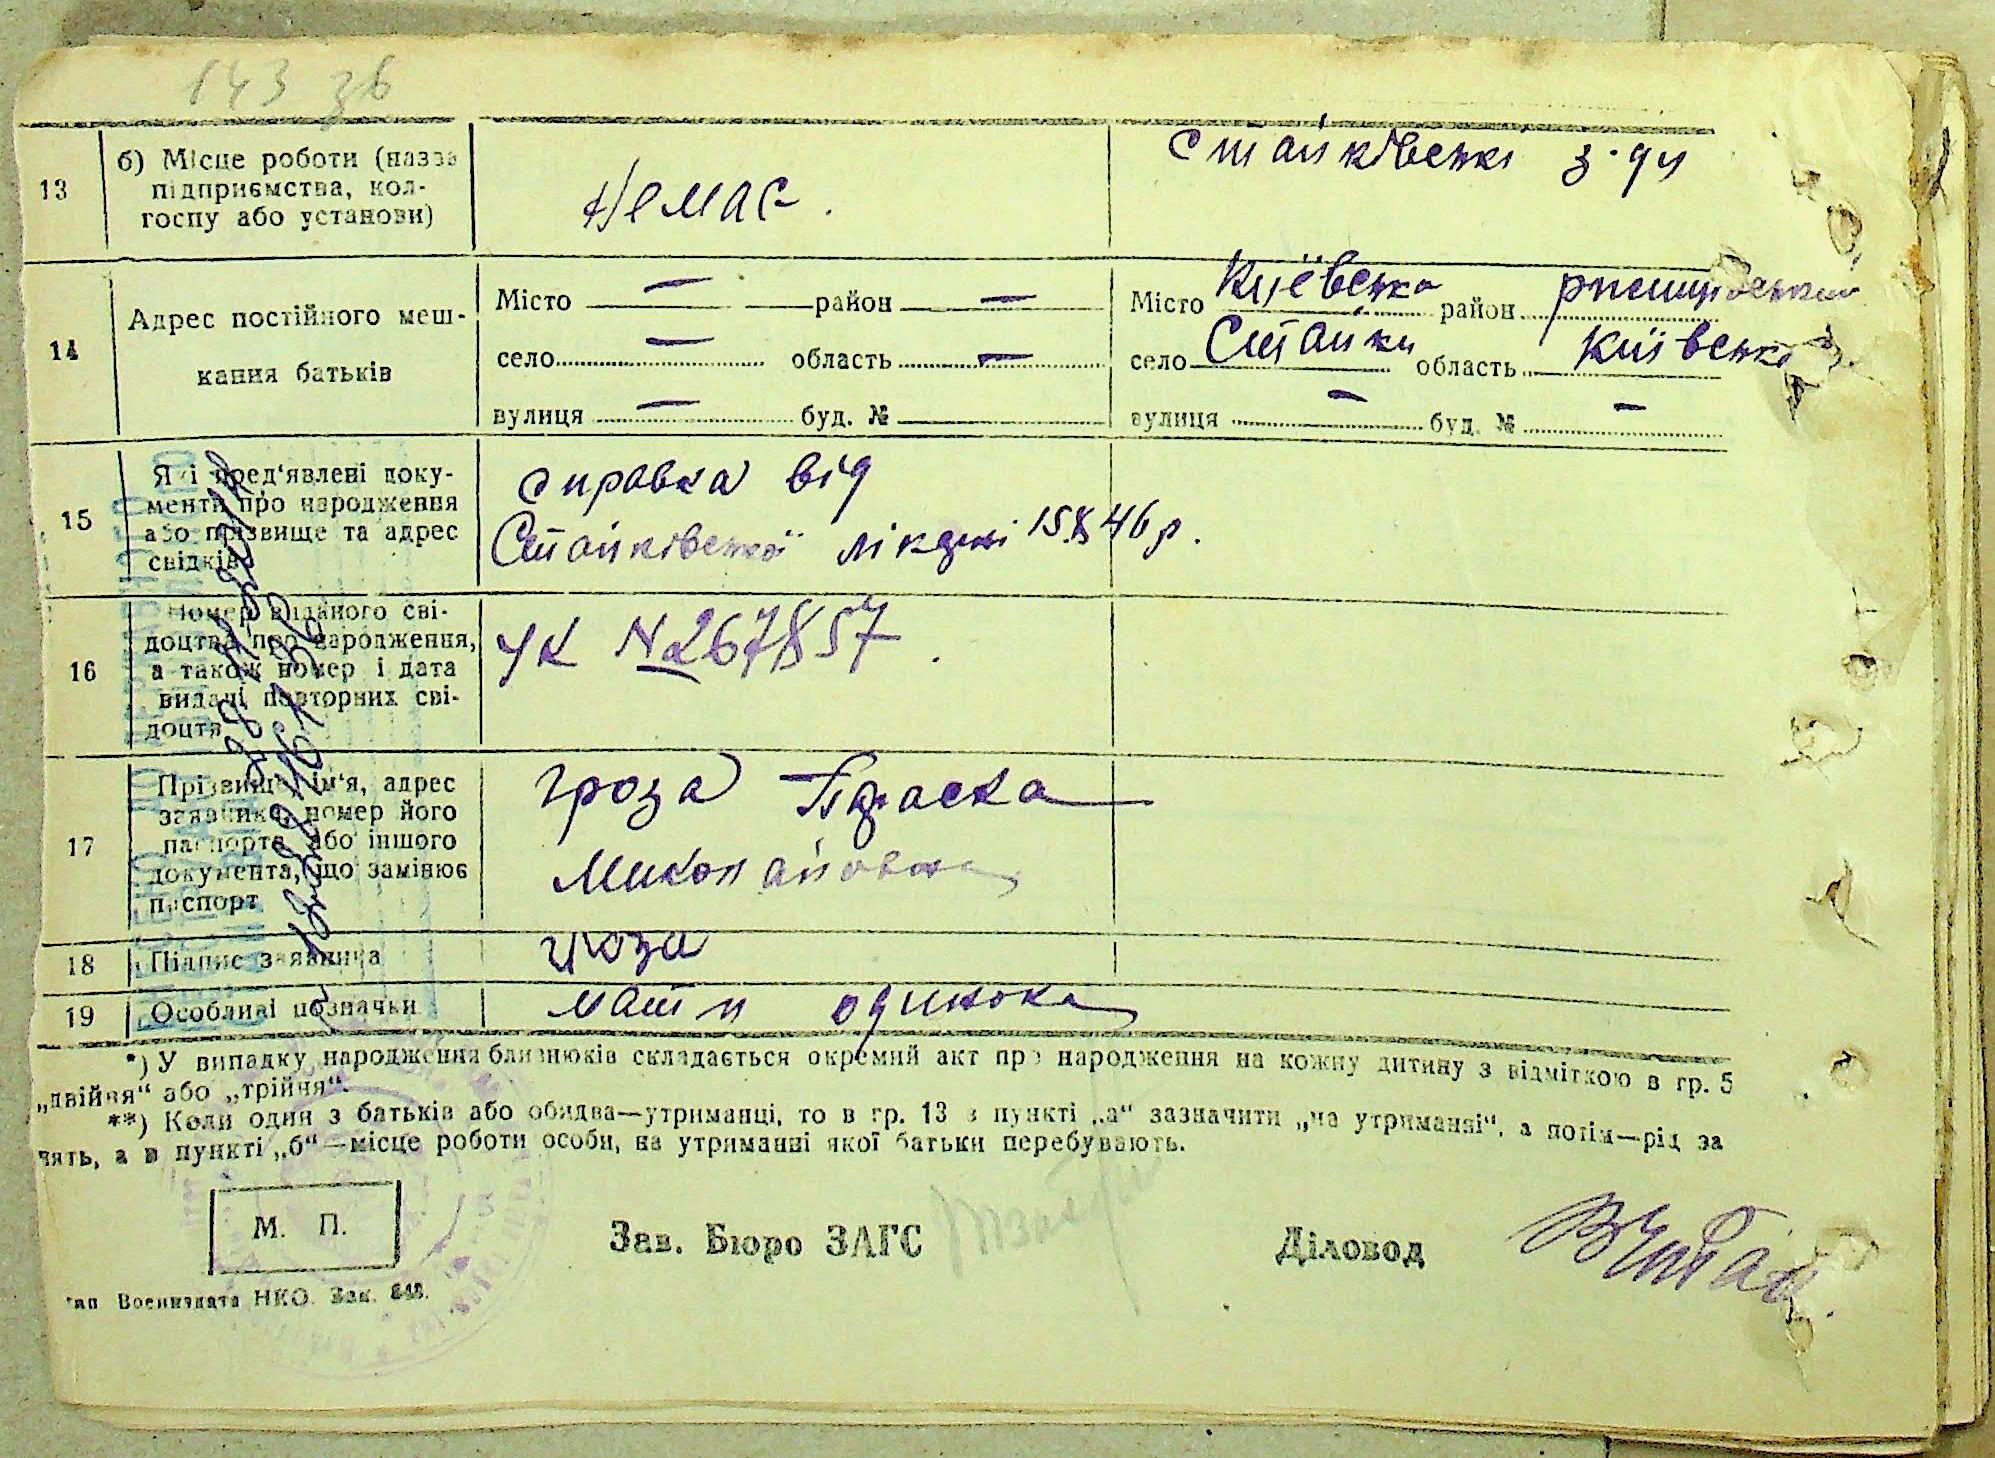 143 зв
13
б) Місце роботи (назва
підприємства, кол-
госпу або установи)
Немає.
Стайківські з-ди
14
Адрес постійного меш-
кання батьків
Місто — район —
село — область —
вулиця — буд. №
Місто Київська район ржищівський
село Стайки область Київська
вулиця — буд. № —
15
Які пред'явлені доку-
менти про народження
або прізвище та адрес
свідків
справка від
Стайківської лікарні 15.X 46 р.
16
Номер виданого сві-
доцтва про народження,
а також номер і дата
видачі повторних сві-
доцтв
УК № 267857.
17
Прізвище, ім'я, адрес
заявника, номер його
паспорта або іншого
документа, що замінює
паспорт
Гроза Параска
Миколаївна
18
Підпис заявника
Гроза
19
Особливі позначки
мати одинока
*) У випадку народження близнюків складається окремий акт про народження на кожну дитину з відміткою в гр. 5
„двійня“ або „трійня“.
**) Коли один з батьків або обидва—утриманці, то в гр. 13 в пункті „а“ зазначити „на утриманні“, а потім—рід за
нять, а в пункті „б“—місце роботи особи, на утриманні якої батьки перебувають.
М. П.
Зав. Бюро ЗАГС
Діловод
Тип Воениздата НКО. Зак. 648.